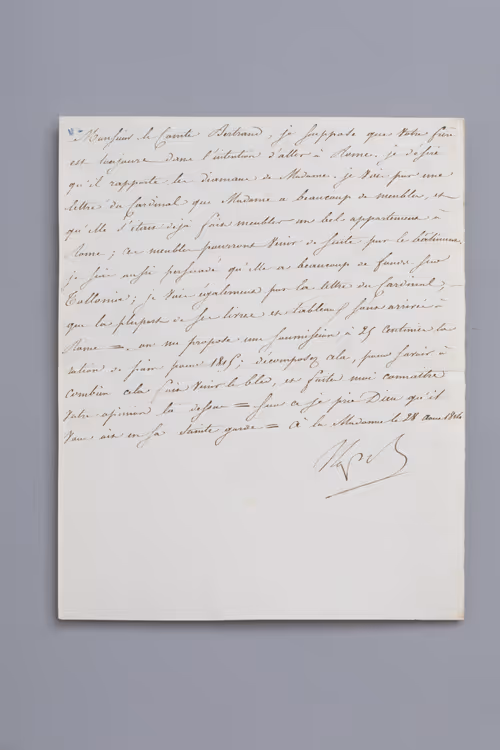 Monsieur le Comte Bertrand, je suppose que votre frère
est toujours dans l'intention d'aller à Rome. je désire
qu'il rapporte les diamans de Madame. je vois par une
lettre du Cardinal que Madame a beaucoup de meubles, et
qu'elle s'étoit déjà fait meubler un bel appartement à
Rome ; ces meubles pourront venir de suite par le bâtiment,
je suis aussi persuadé qu'elle a beaucoup de fonds sur
Tollonia ; je vois également par la lettre du Cardinal,
que la plupart de ses livres et tableaux sont arrivés à
Rome = on me propose une soumission à 25 centimes la
ration de pain pour 1815 ; décomposez cela, pour savoir à
combien cela fait venir le bled, et faites moi connaître
votre opinion la dessus = Sur ce je prie Dieu qu'il
vous ait en sa sainte garde = à la Madonne le 28 aout 1814
Nap